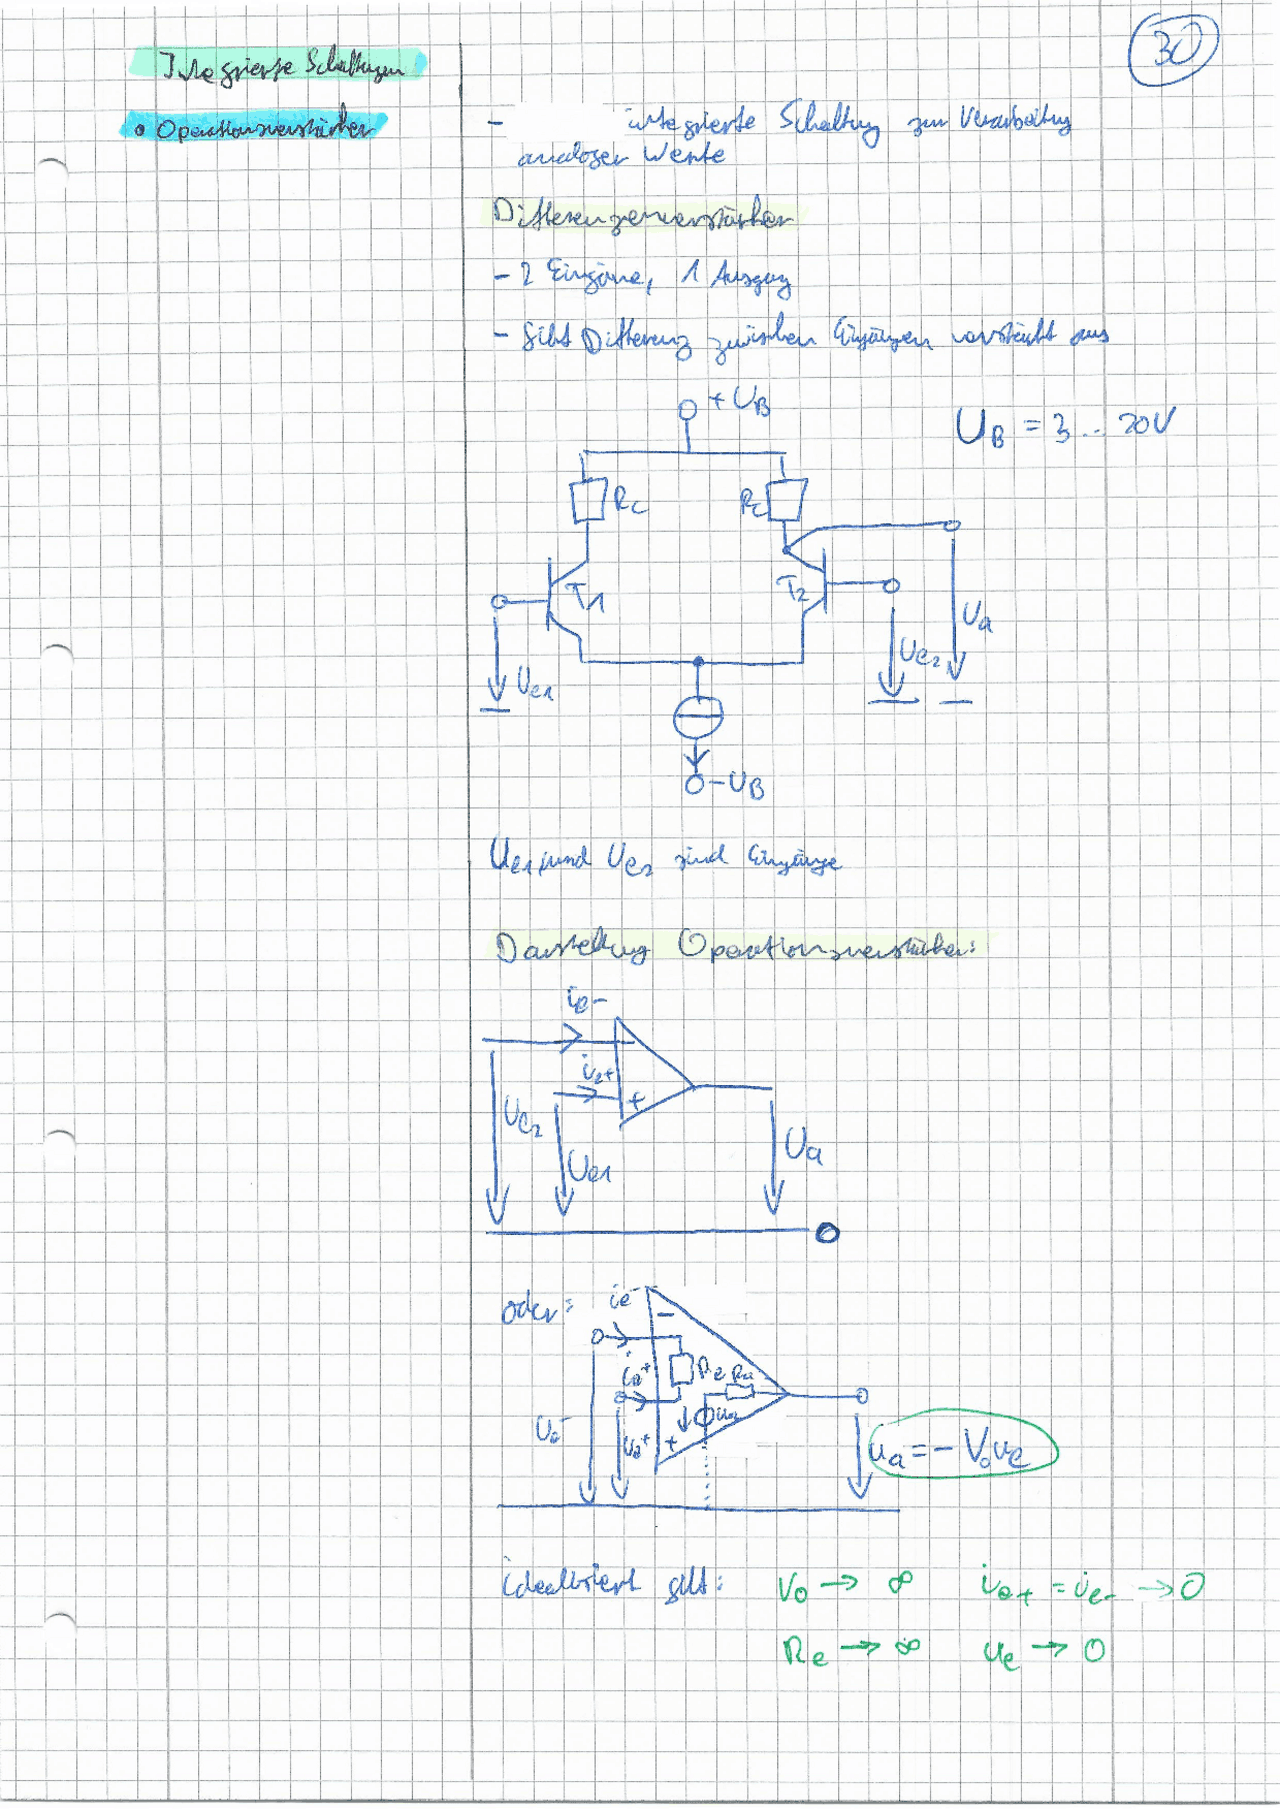 30
Integrierte Schaltungen
• Operationsverstärker
- integrierte Schaltung zur Verarbeitung
analoger Werte
Differenzenverstärker
- 2 Eingäne, 1 Ausgang
- Gibt Differenz zwischen Eingängen verstärkt aus
+ UB
UB = 3 ... 20V
RC RC
T1 T2
Ua
Ue2
Ue1
-UB
Ue1 und Ue2 sind Eingänge
Darstellung Operationsverstärker:
ie-
ie+
+
Ue2
Ue1
Ua
oder: ie-
-
ie+ Re Ra
Ue- Ue+ +
ua = - V0 ue
idealisiert gilt: V0 → ∞ ie+ = ie- → 0
Re → ∞ ue → 0